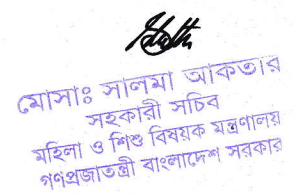 মোসাঃ সালমা আকতার
সহকারী সচিব
মহিলা ও শিশু বিষয়ক মন্ত্রণালয়
গণপ্রজাতন্ত্রী বাংলাদেশ সরকার